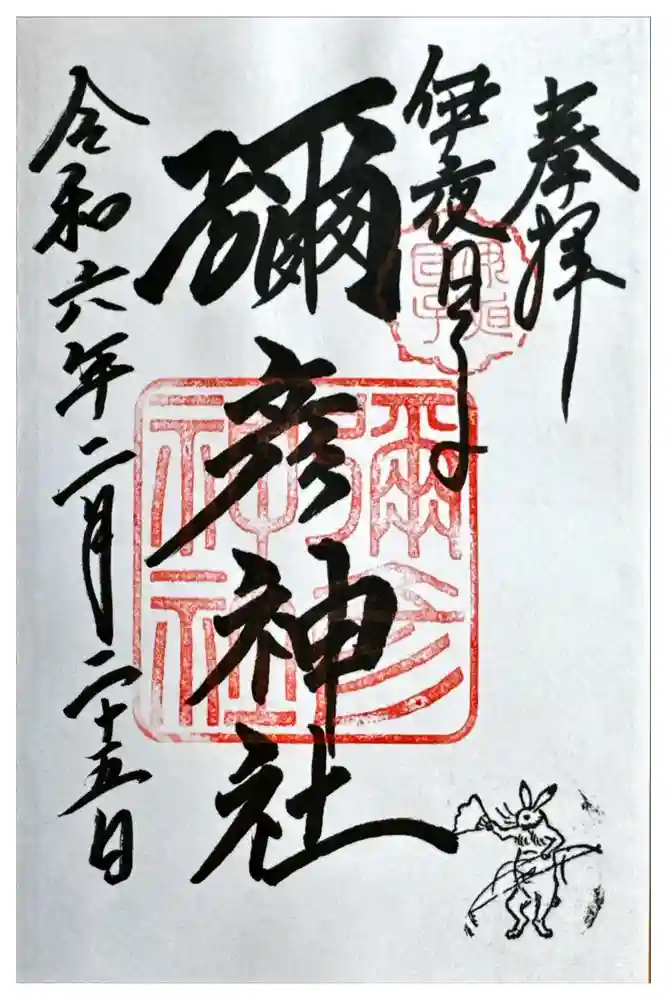 奉拝
伊夜日子
彌彦神社
令和六年二月二十五日
彌彦神社